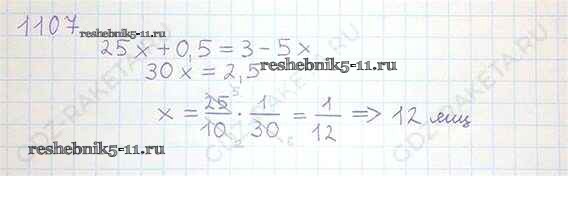 1107 reshebnik5-11.ru
25x + 0,5 = 3 - 5x
30x = 2,5 reshebnik5-11.ru
x = 25/10 · 1/30 = 1/12 => 12 яиц
5
2 6
reshebnik5-11.ru
GDZ-RAKETA.RU
GDZ-RAKETA.RU
GDZ-RAKETA.RU